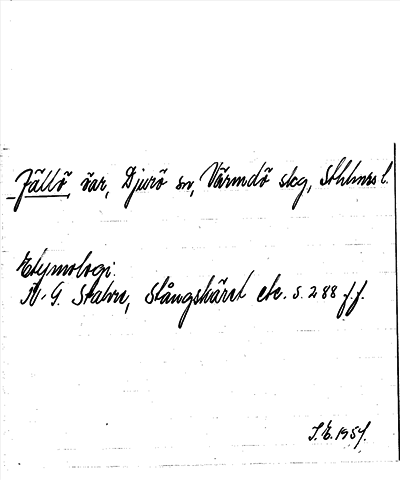 Fällö öar, Djurö sn, Värmdö skg, Sthlms l.
Etymologi:
N.-G. Stahre, Stångskäret etc. s. 288 f.f.
S.E. 1954.